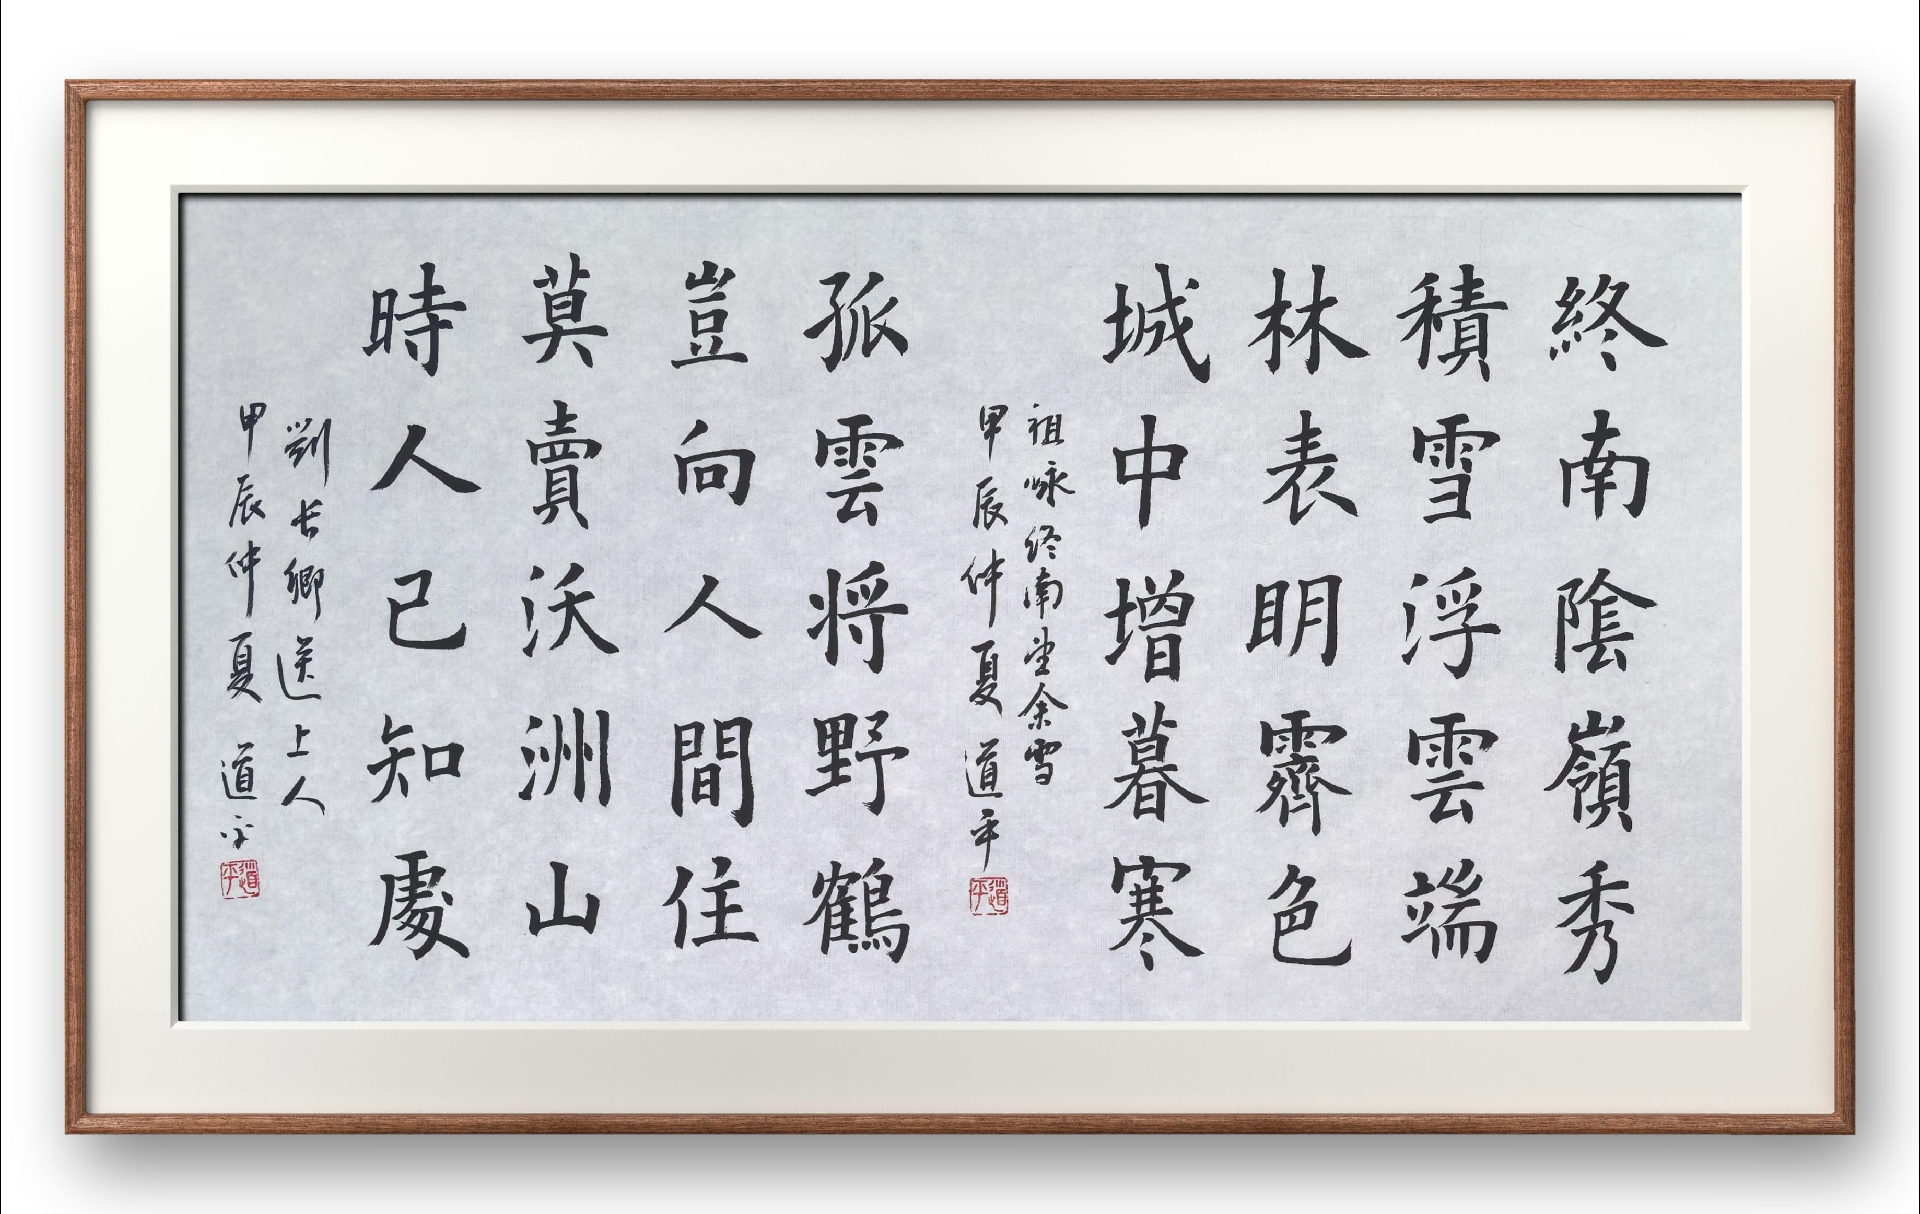 終南陰嶺秀
積雪浮雲端
林表明霽色
城中增暮寒
祖咏终南望余雪
甲辰仲夏 道平
道平
孤雲将野鶴
豈向人間住
莫賣沃洲山
時人已知處
劉长卿送上人
甲辰仲夏 道平
道平